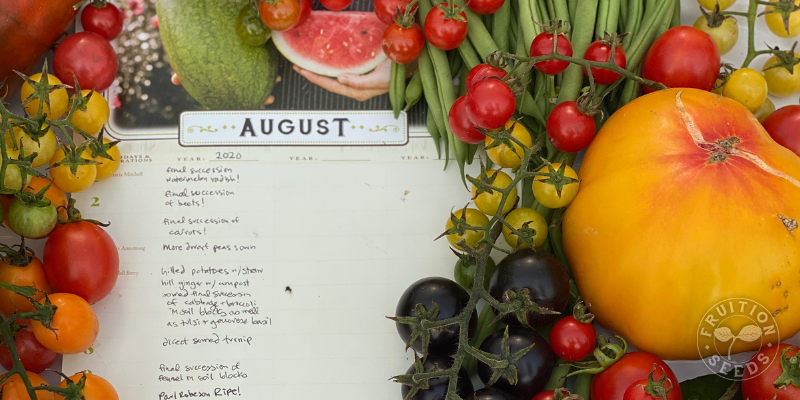 AUGUST
YEAR: 2020 YEAR: YEAR:
final succession
watermelon radish!
2
final succession
of beets!
final succession of
carrots!
more dwarf peas sown
hilled potatoes w/ straw
hill ginger w/ compost
sowed final succession
of cabbage + broccoli
in soil blocks as well
as tulsi + genovese basil
direct sowed turnip
final succession of
fennel in soil blocks
Paul Robeson Ripe!
FRUITION
SEEDS